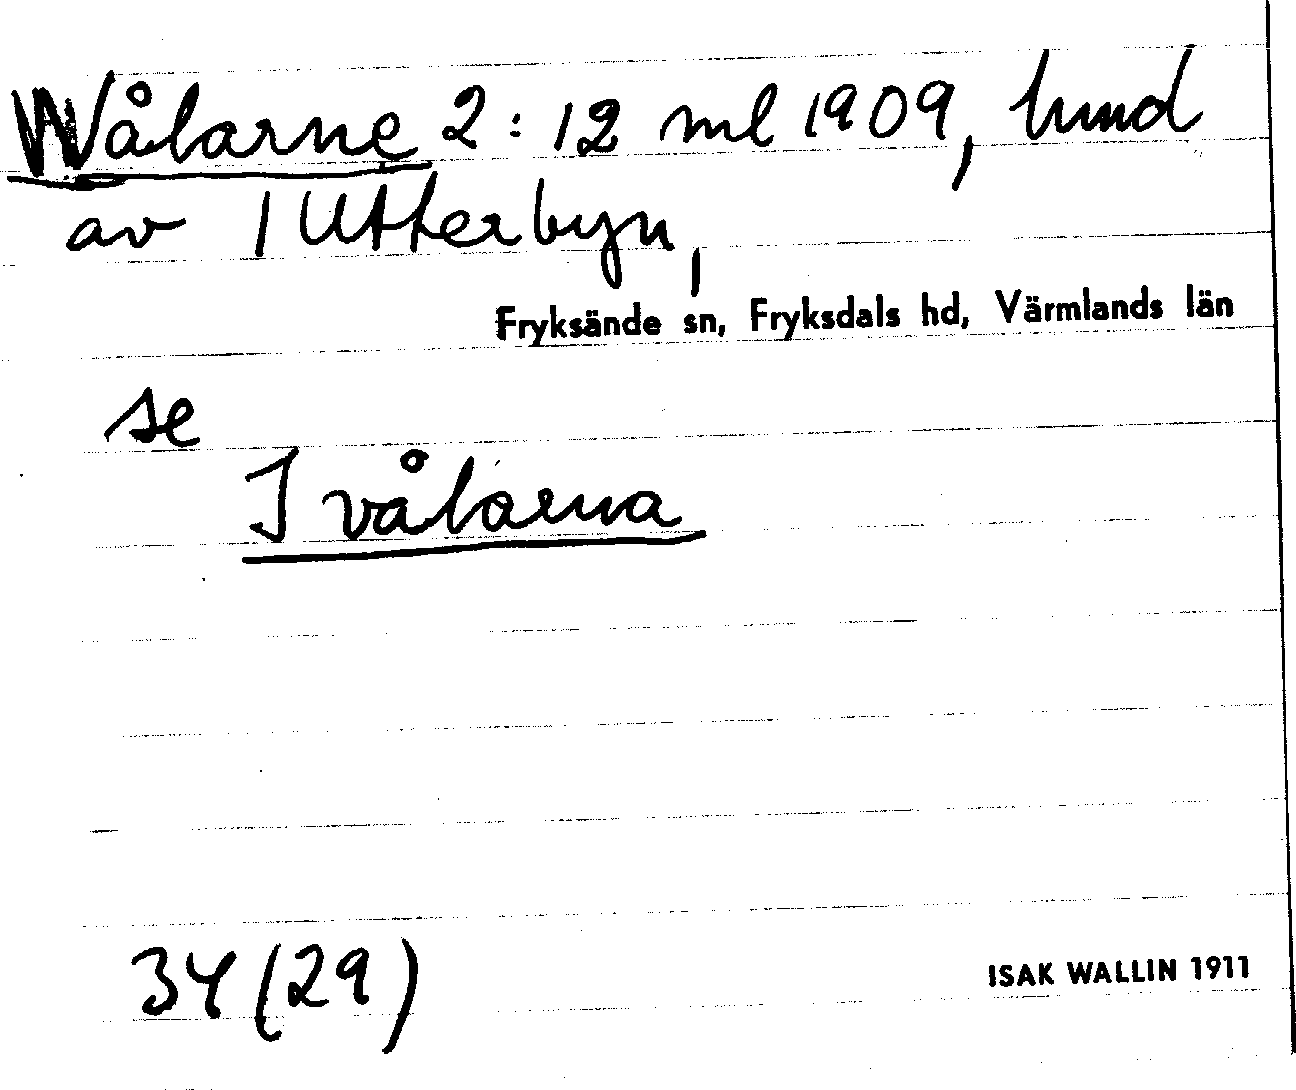 Wålarne 2:12 ml 1909, hmd
av 1 Utterbyn,
Fryksände sn, Fryksdals hd, Värmlands län
se
I vålarna
34 (29)
ISAK WALLIN 1911